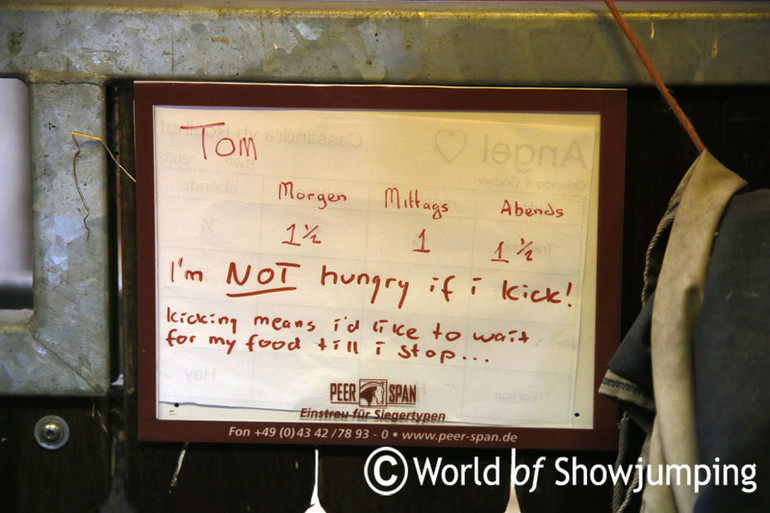 Tom
Morgen Mittags Abends
1½ 1 1½
I'm NOT hungry if i kick!
kicking means i'd like to wait
for my food till i stop...
PEER SPAN
Einstreu für Siegertypen
Fon +49 (0) 43 42 / 78 93 - 0 • www.peer-span.de
© World of Showjumping
Angel ♡
Cassandra vh Roelhof
abends
Hay